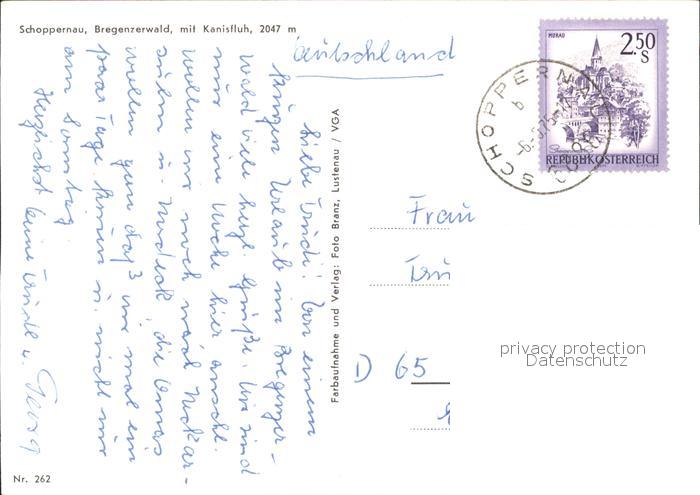 Schoppernau, Bregenzerwald, mit Kanisfluh, 2047 m
Deutschland
Liebe Trudi! Von einem
kurzen Urlaub im Bregenzer-
wald viele herzl. Grüße. Wir sind
nur eine Woche hier anschl.
wollen wir noch mal Neckar-
sulm u.
wollen gern daß wir mal ein
paar Tage kommen u. nicht nur
am Sonntag.
Herzlichst Deine Trudl u. Georg
Farbaufnahme und Verlag: Foto Branz, Lustenau / VGA
MURAU
2.50
S
REPUBLIK ÖSTERREICH
SCHOPPERNAU
b
Frau
Tru
D 65
privacy protection
Datenschutz
Nr. 262